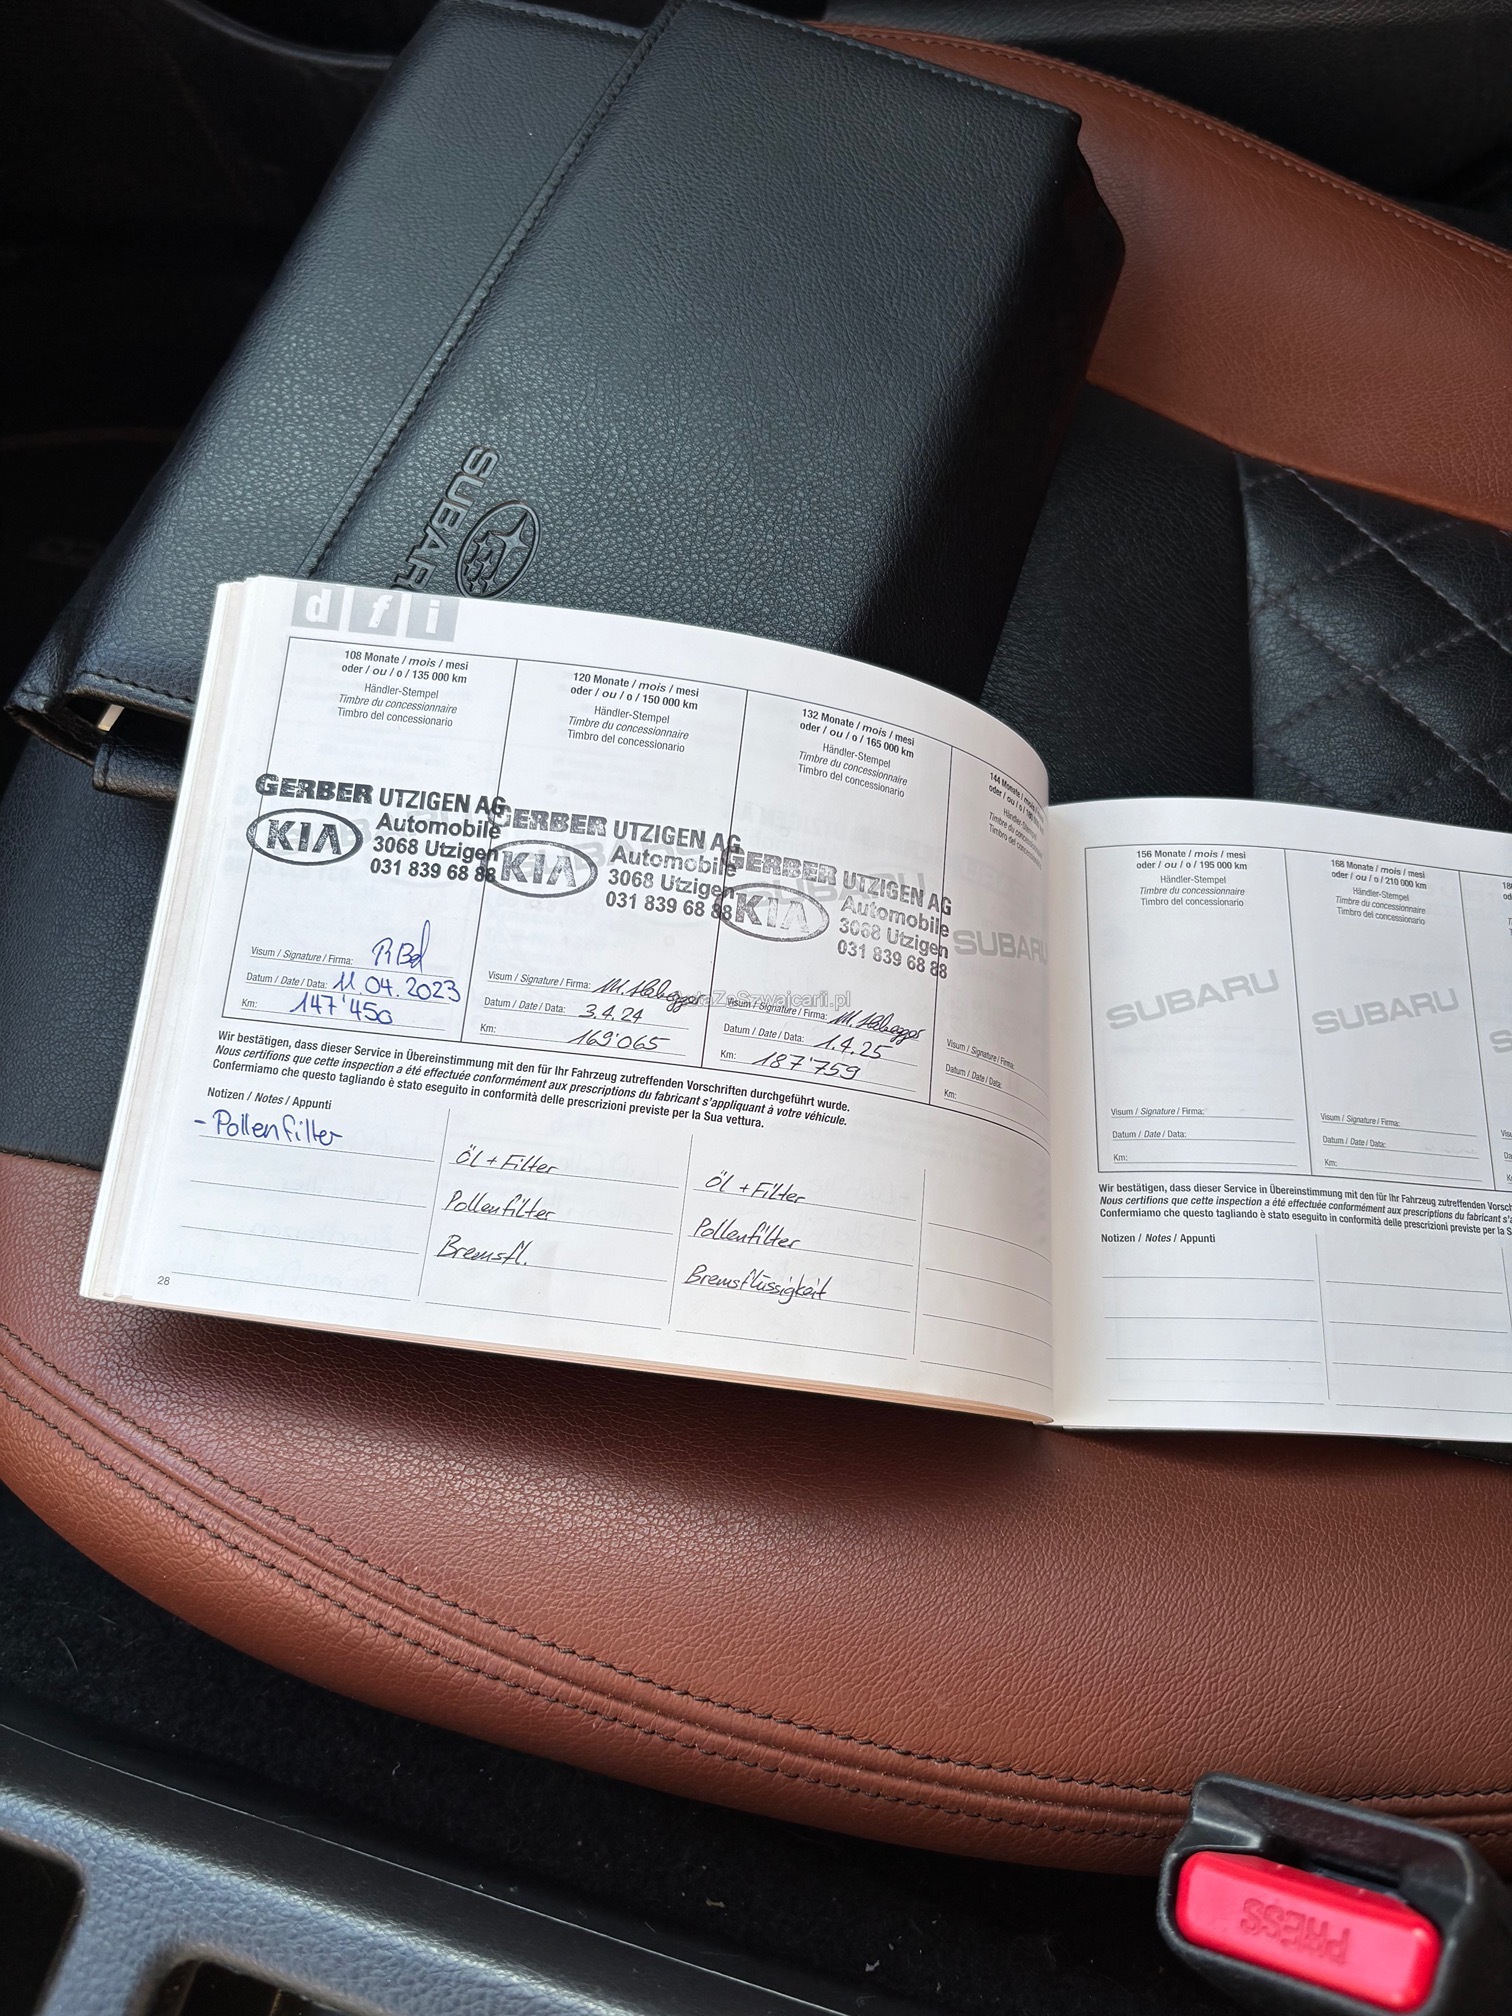 SUBARU
d f i
108 Monate / mois / mesi
oder / ou / o / 135 000 km
Händler-Stempel
Timbre du concessionnaire
Timbro del concessionario
GERBER UTZIGEN AG
KIA
Automobile
3068 Utzigen
031 839 68 88
Visum / Signature / Firma:
Datum / Date / Data: 11.04.2023
Km: 147'450
120 Monate / mois / mesi
oder / ou / o / 150 000 km
Händler-Stempel
Timbre du concessionnaire
Timbro del concessionario
GERBER UTZIGEN AG
KIA
Automobile
3068 Utzigen
031 839 68 88
Visum / Signature / Firma:
Datum / Date / Data: 3.4.24
Km: 169'065
132 Monate / mois / mesi
oder / ou / o / 165 000 km
Händler-Stempel
Timbre du concessionnaire
Timbro del concessionario
GERBER UTZIGEN AG
KIA
Automobile
3068 Utzigen
031 839 68 88
Visum / Signature / Firma:
Datum / Date / Data: 1.4.25
Km: 187'759
144 Monate / mois /
oder / ou / o /
Händler-Stempel
Timbre du
Timbro del
SUBARU
Visum / Signature / Firma:
Datum / Date / Data:
Km:
Wir bestätigen, dass dieser Service in Übereinstimmung mit den für Ihr Fahrzeug zutreffenden Vorschriften durchgeführt wurde.
Nous certifions que cette inspection a été effectuée conformément aux prescriptions du fabricant s'appliquant à votre véhicule.
Confermiamo che questo tagliando è stato eseguito in conformità delle prescrizioni previste per la Sua vettura.
Notizen / Notes / Appunti
- Pollenfilter
Öl + Filter
Pollenfilter
Bremsfl.
Öl + Filter
Pollenfilter
Bremsflüssigkeit
28
156 Monate / mois / mesi
oder / ou / o / 195 000 km
Händler-Stempel
Timbre du concessionnaire
Timbro del concessionario
SUBARU
Visum / Signature / Firma:
Datum / Date / Data:
Km:
168 Monate / mois / mesi
oder / ou / o / 210 000 km
Händler-Stempel
Timbre du concessionnaire
Timbro del concessionario
SUBARU
Visum / Signature / Firma:
Datum / Date / Data:
Km:
Wir bestätigen, dass dieser Service in Übereinstimmung mit den für Ihr Fahrzeug zutreffenden
Nous certifions que cette inspection a été effectuée conformément aux prescriptions du fabricant
Confermiamo che questo tagliando è stato eseguito in conformità delle prescrizioni previste per la
Notizen / Notes / Appunti
PRESS